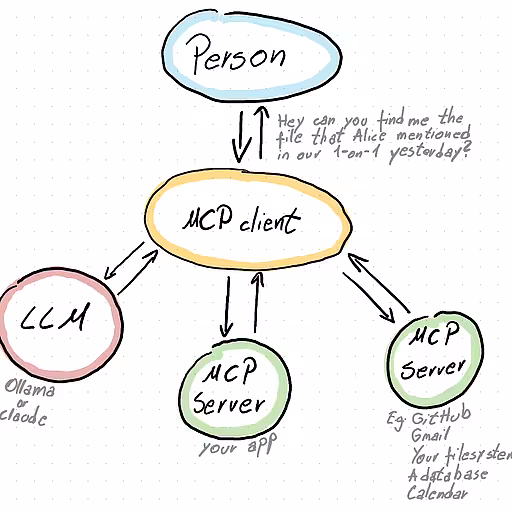 Person
Hey can you find me the
file that Alice mentioned
in our 1-on-1 yesterday?
MCP client
LLM
Ollama
or
claude
MCP
Server
your app
MCP
Server
Eg GitHub
Gmail
Your filesystem
A database
Calendar